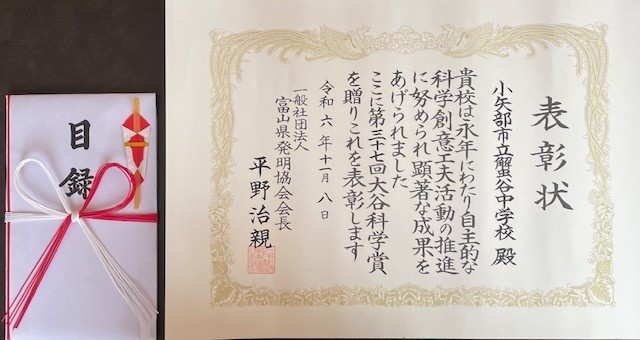 表彰状
小矢部市立蟹谷中学校 殿
貴校は永年にわたり自主的な
科学創意工夫活動の推進
に努められ顕著な成果を
あげられました
ここに第三十七回大谷科学賞
を贈りこれを表彰します
令和六年十一月八日
一般社団法人
富山県発明協会会長
平野治親
目録